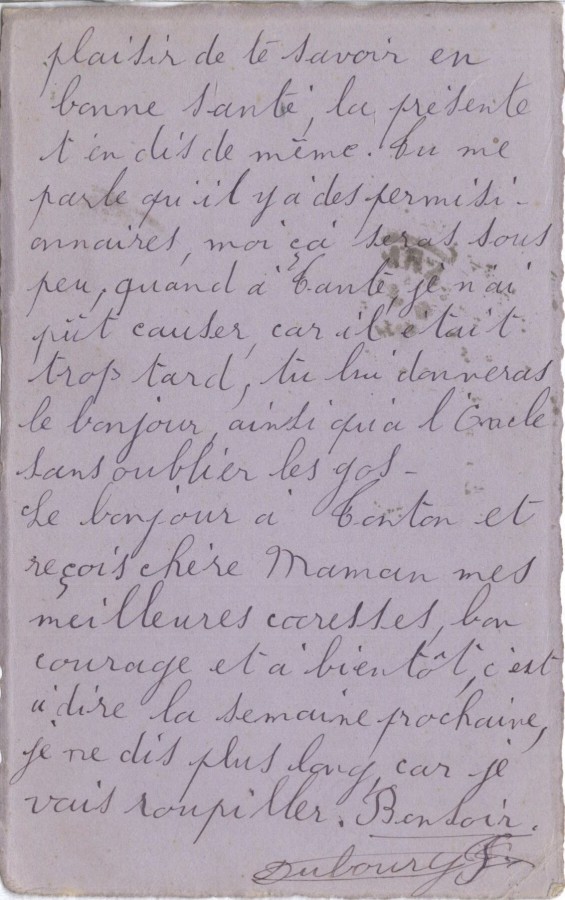 plaisir de te savoir en
bonne santé, la présente
t'en dis de même. Tu me
parle qu'il y à des permisi-
onnaires, moi çà seras sous
peu, quand à Tante, je n'ai
pût causer, car il était
trop tard, tu lui donneras
le bonjour, ainsi qu'à l'Oncle
sans oublier les gos-
Le bonjour à Tonton et
reçois chère Maman mes
meilleures caresses, bon
courage et à bientôt, c'est
à dire la semaine prochaine,
je ne dis plus long, car je
vais roupiller. Bonsoir.